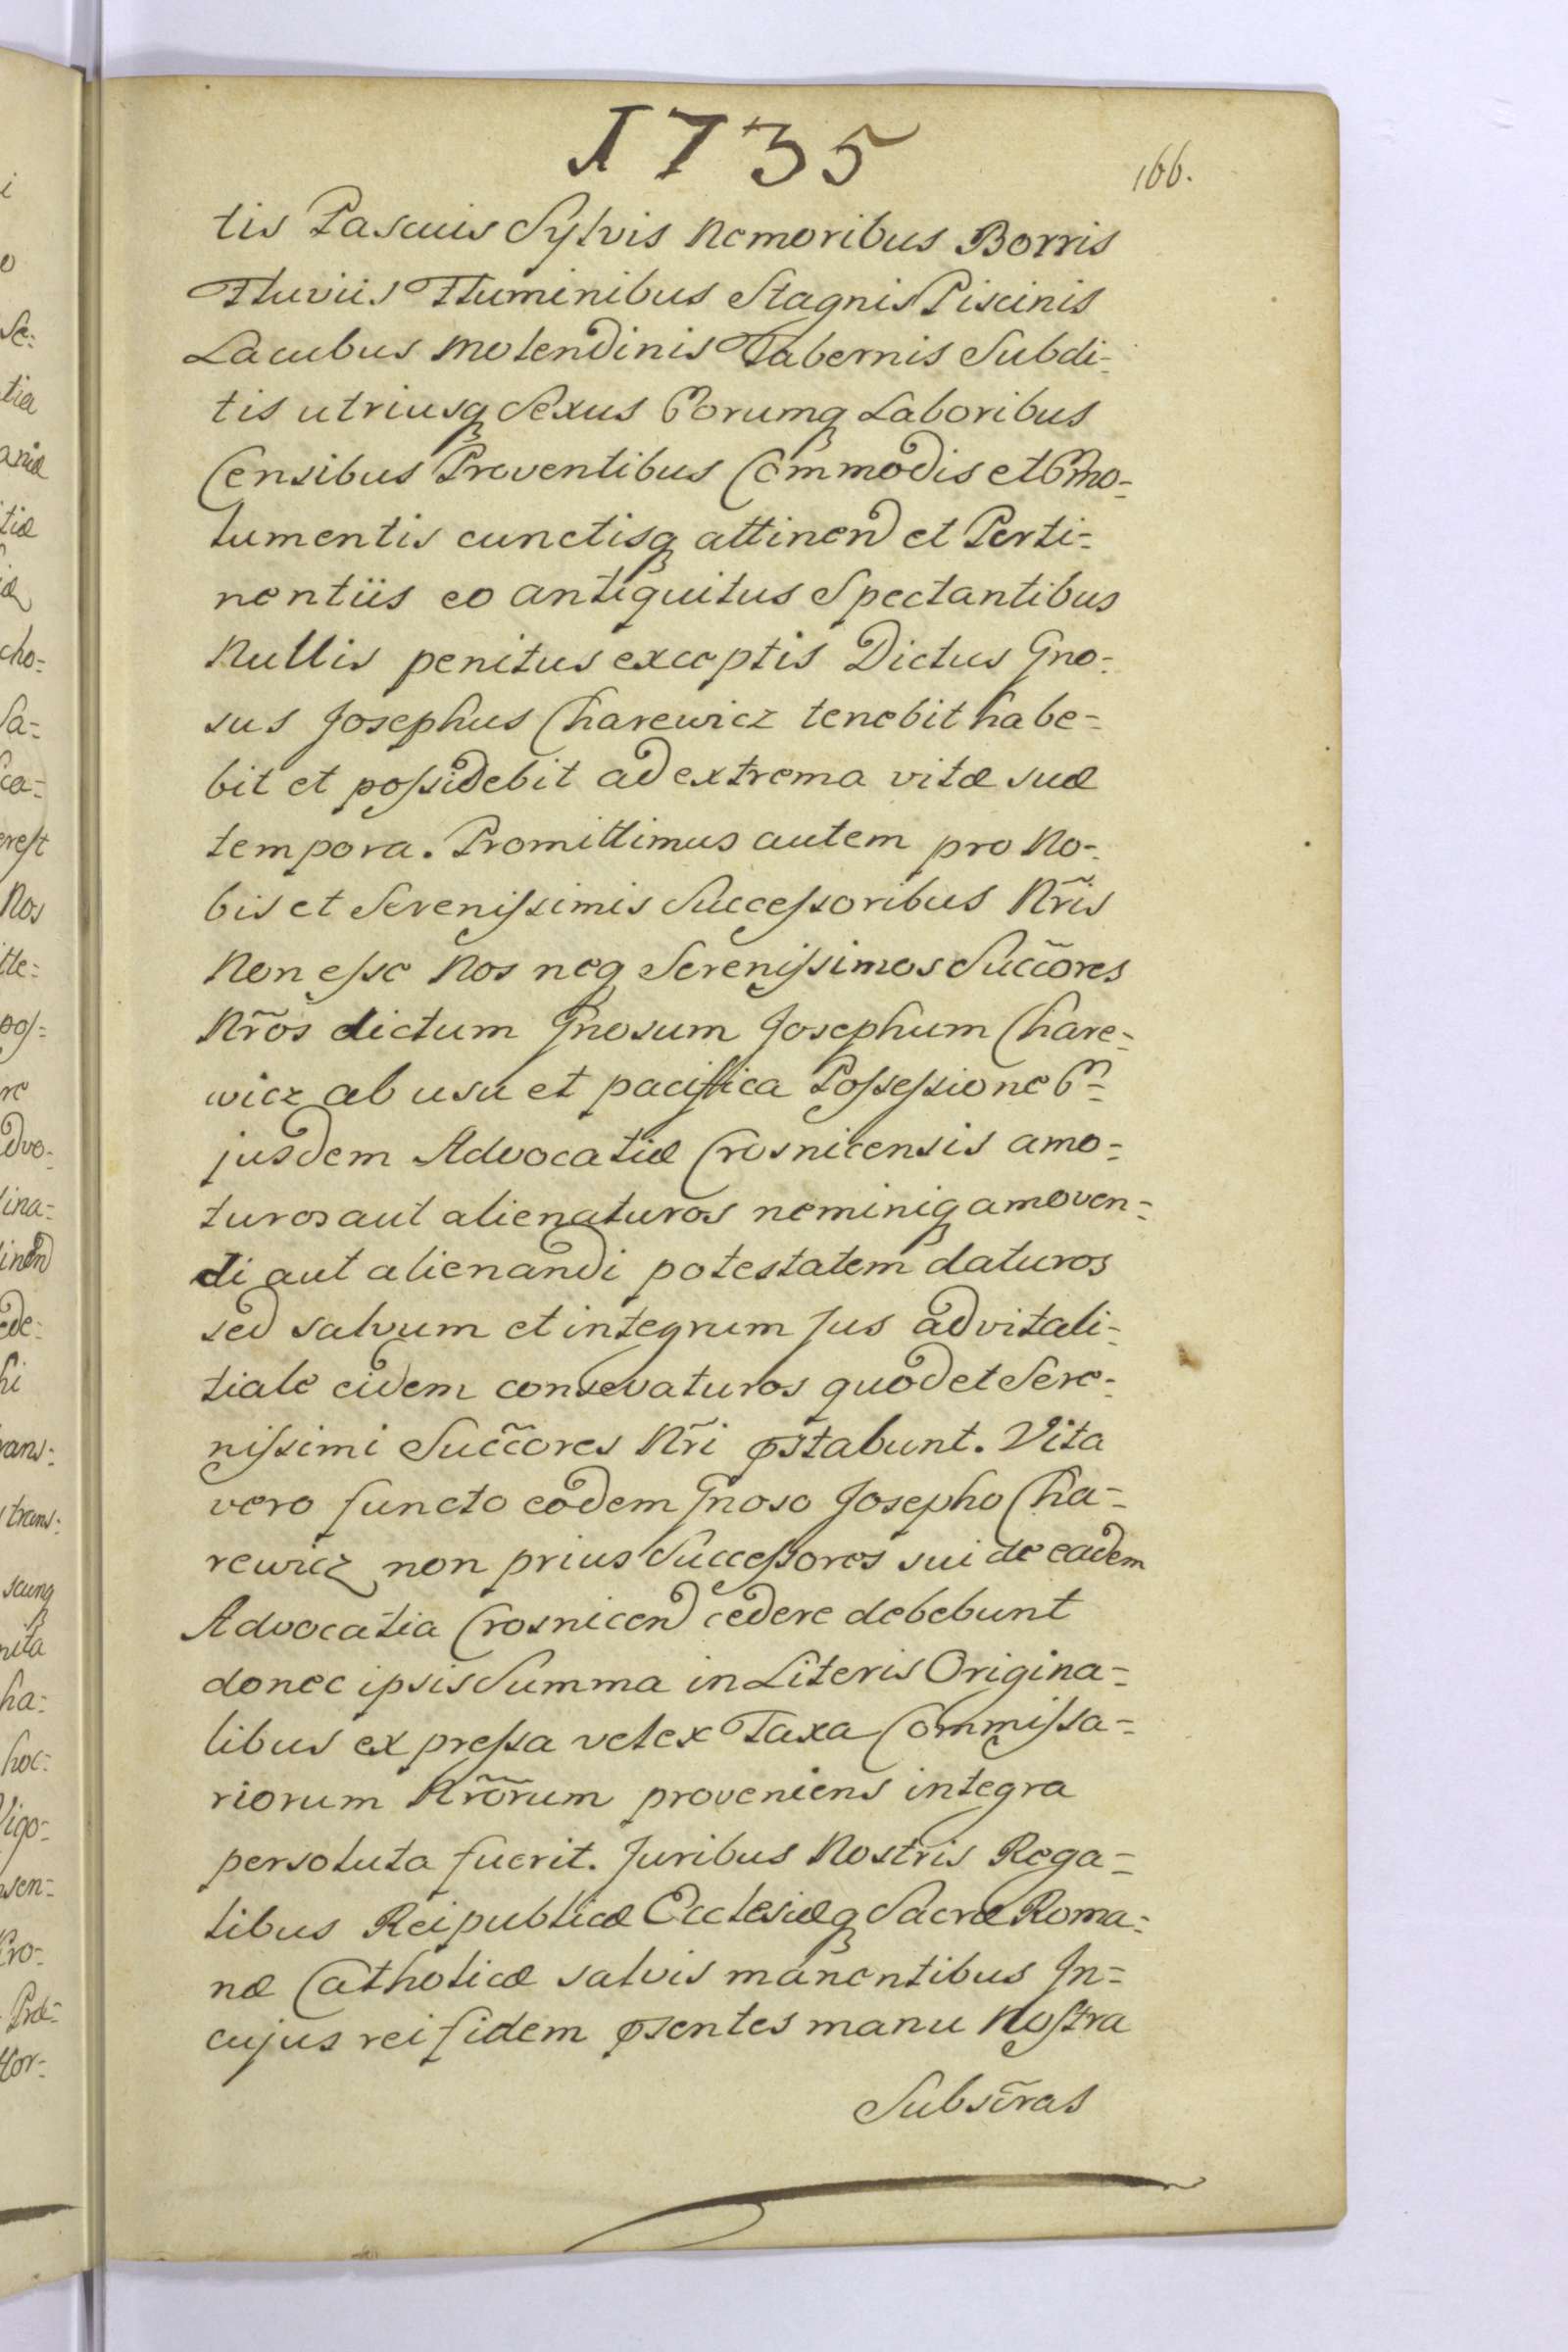 1735
166.
tis Pascuis Sylvis Nemoribus Borris
Fluviis Fluminibus Stagnis Piscinis
Lacubus Molendinis Tabernis Subdi-
tis utriusq Sexus Eorumq Laboribus
Censibus Proventibus Commodis et Emo-
lumentis cunctisq attinen et Perti-
nentiis eo antiquitus Spectantibus
Nullis penitus exceptis Dictus Gno-
sus Josephus Charewicz tenebit habe-
bit et possidebit ad extrema vitæ suæ
tempora. Promittimus autem pro No-
bis et Serenissimis Successoribus Nr̃is
Non esse Nos neq Serenissimos Succ̃ores
Nr̃os dictum Gnosum Josephum Chare-
wicz ab usu et pacifica Possessione E-
jusdem Advocatiæ Crosnicensis amo-
turos aut alienaturos neminiq amoven-
di aut alienandi potestatem daturos
sed salvum et integrum Jus advitali-
tiale eidem consevaturos quod et Sere-
nissimi Succ̃ores Nr̃i pstabunt. Vita
vero functo eodem Gnoso Josepho Cha-
rewicz non prius Successores sui de eadem
Advocatia Crosnicen cedere debebunt
donec ipsis Summa in Literis Origina-
libus expressa vel ex Taxa Commissa-
riorum Nr̃orum proveniens integra
persoluta fuerit. Juribus Nostris Rega-
libus Reipublicæ Ecclesiæq Sacræ Roma-
næ Catholicæ salvis manentibus In-
cujus rei fidem psentes manu Nostra
Subsc̃ras